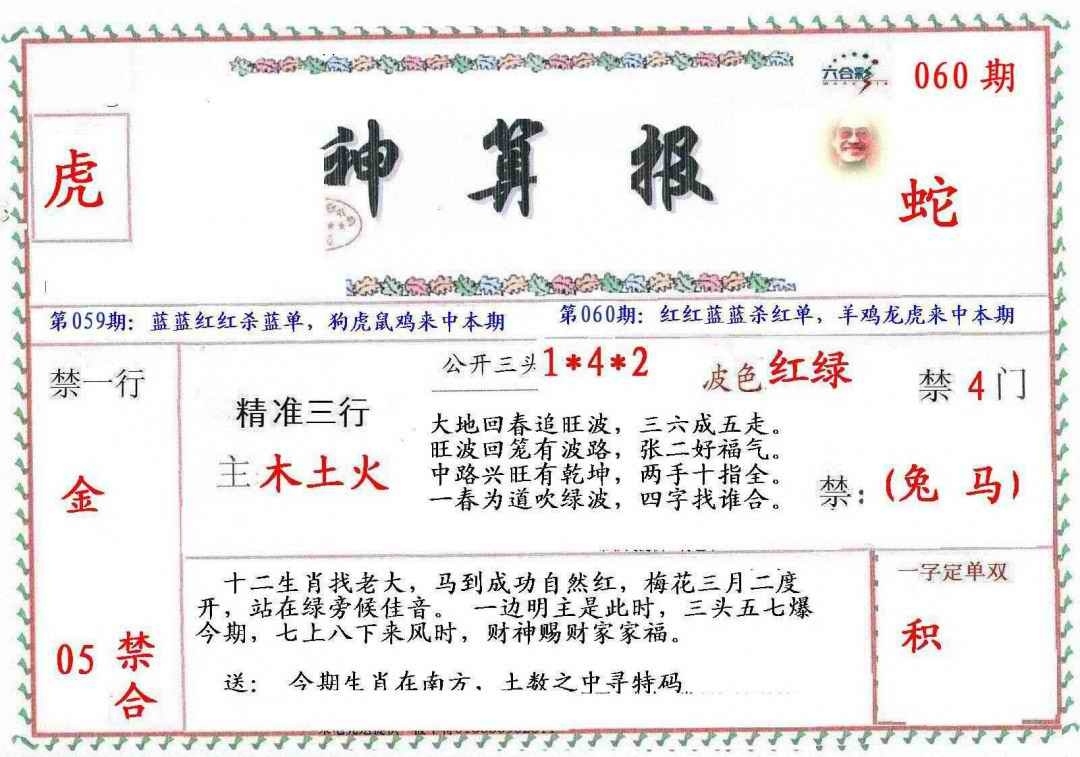 六合彩
060期
虎
神算报
蛇
第059期：蓝蓝红红杀蓝单，狗虎鼠鸡来中本期
第060期：红红蓝蓝杀红单，羊鸡龙虎来中本期
禁一行
金
05禁合
精准三行
主木土火
公开三头1*4*2
波色红绿
禁4门
大地回春追旺波，三六成五走。
旺波回笼有波路，张二好福气。
中路兴旺有乾坤，两手十指全。
一春为道吹绿波，四字找谁合。
禁：(兔 马)
十二生肖找老大，马到成功自然红，梅花三月二度
开，站在绿旁候佳音。 一边明主是此时，三头五七爆
今期，七上八下来风时，财神赐财家家福。
送： 今期生肖在南方，土数之中寻特码
一字定单双
积